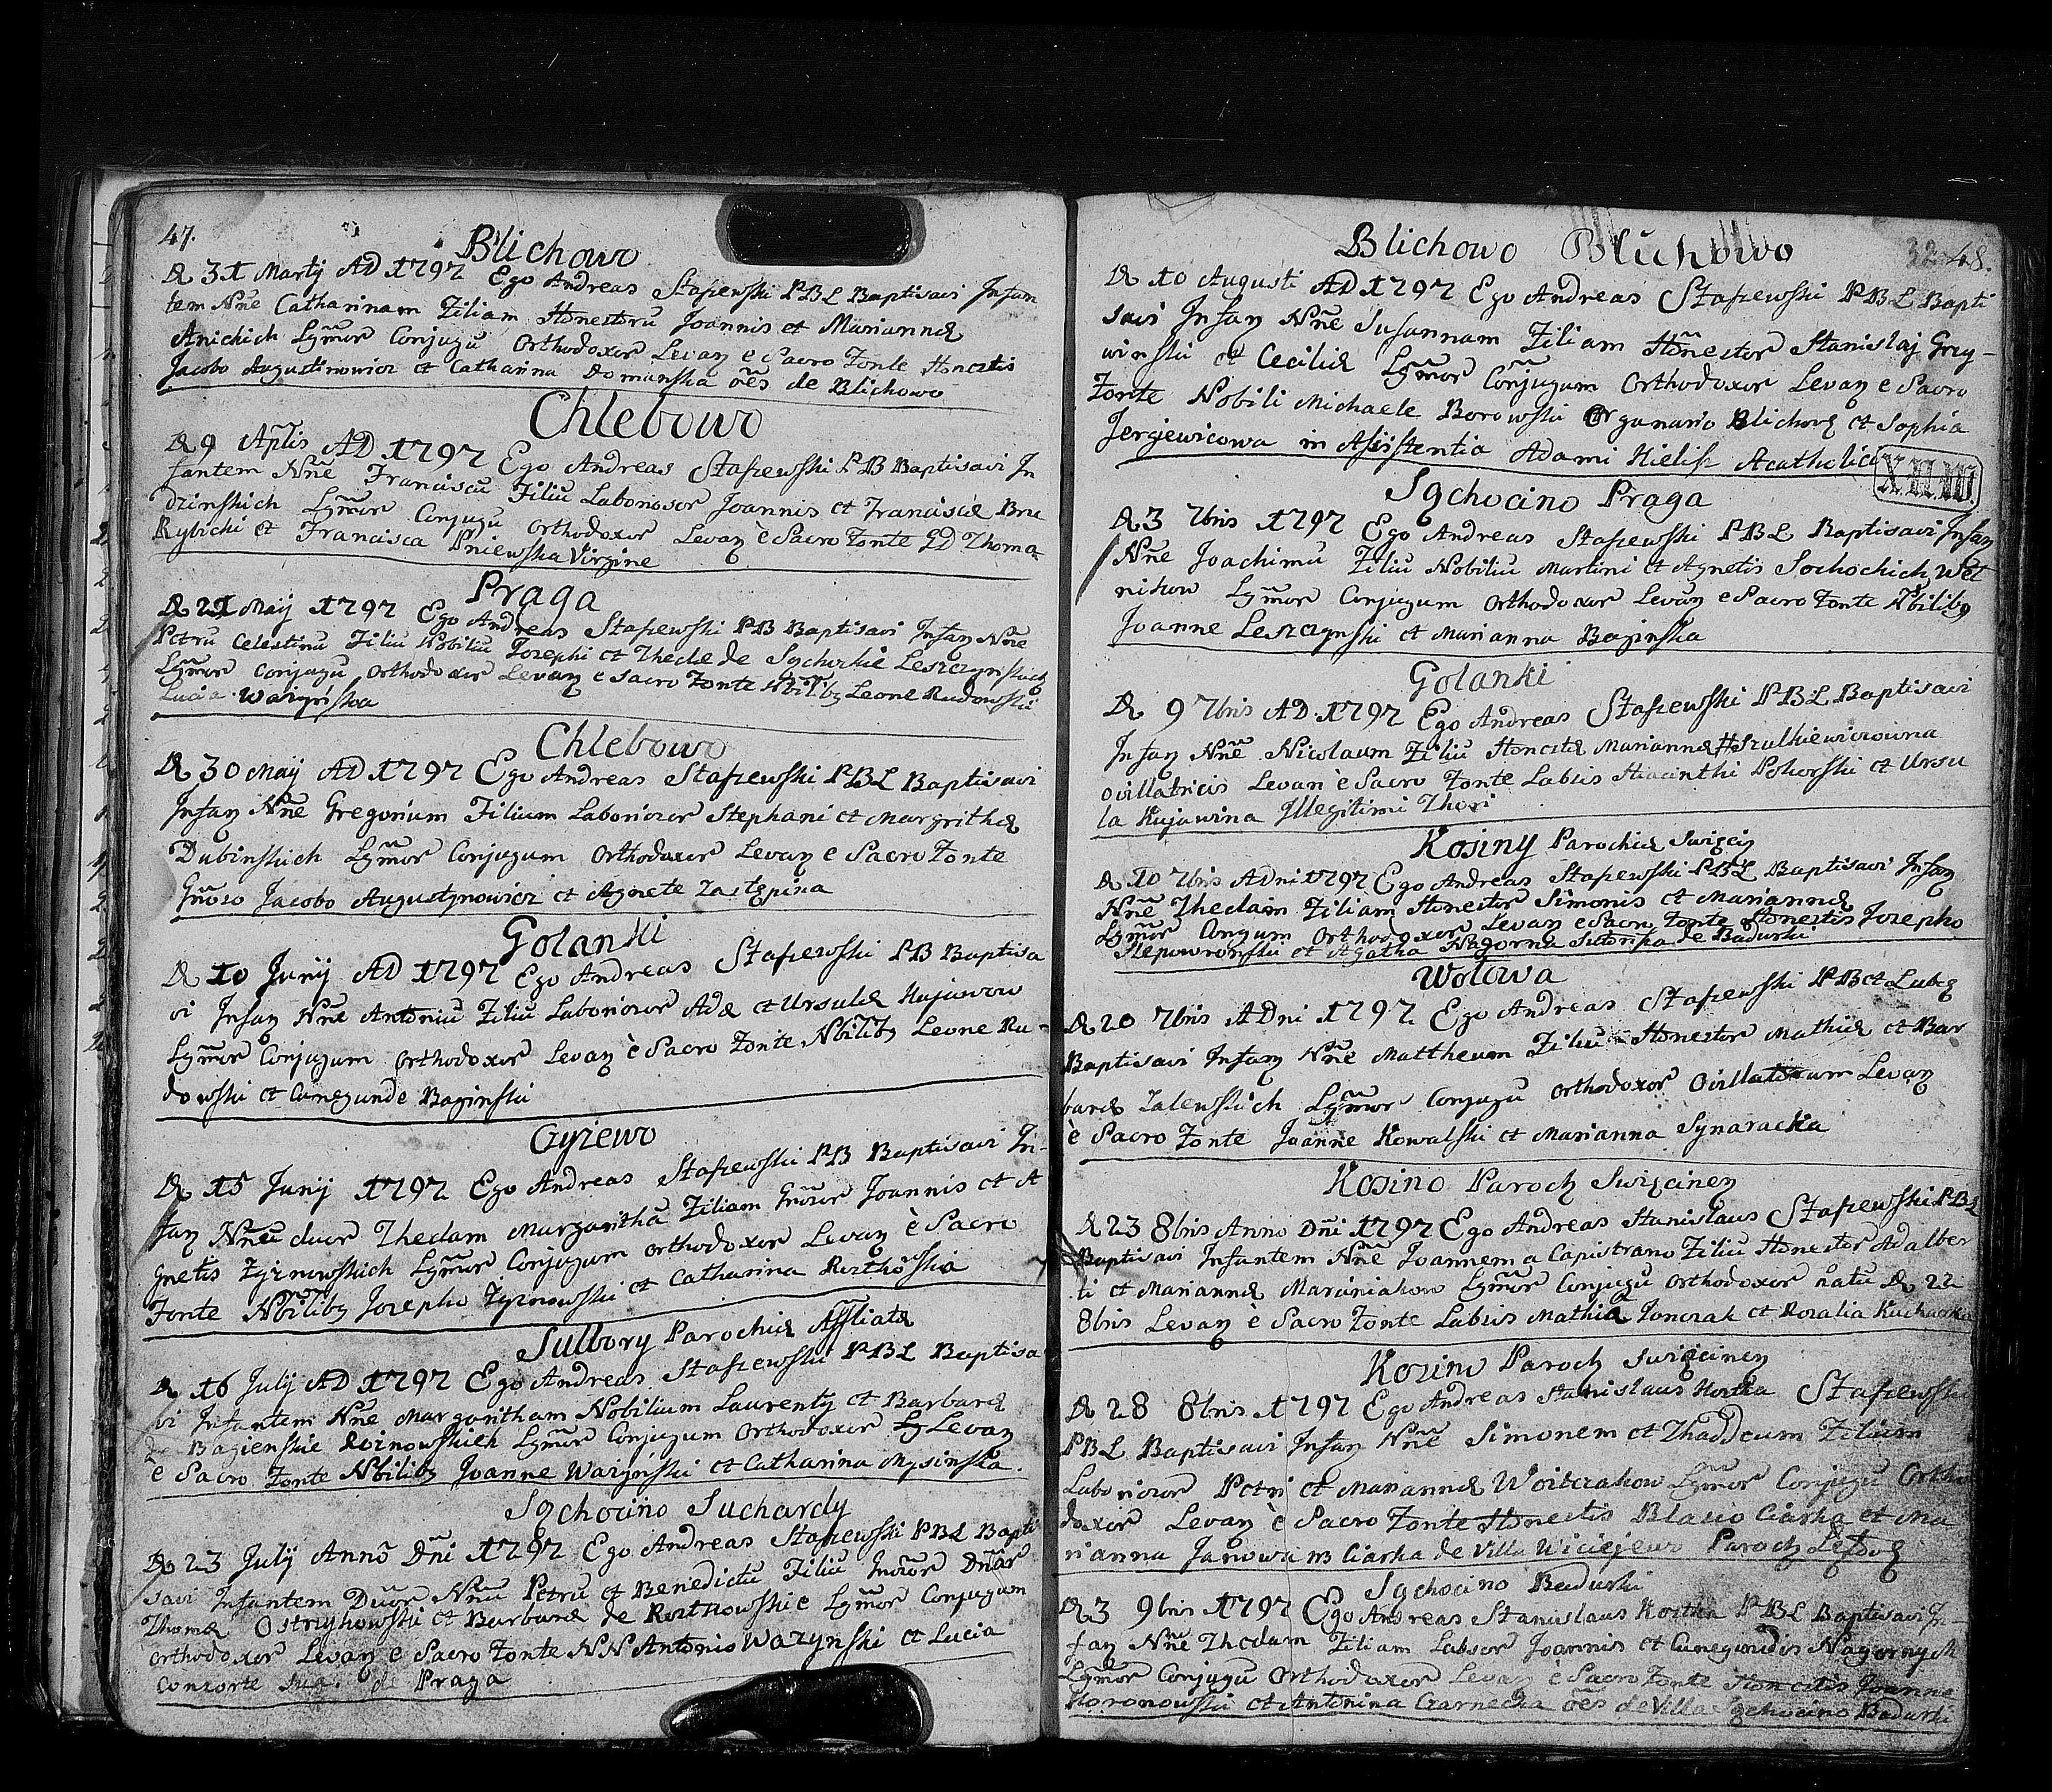 47.
Blichowo
D 31 Martij AD 1797 Ego Andreas Staszewski PBL Baptisavi Infan
tem Nñe Catharinam Filiam Honestorũ Joannis et Mariannæ
Anichich Lgmor Conjugũ Orthodoxor Levan e Sacro Fonte Honestis
Jacobo Augustinowicz et Catharina Domanska oẽs de Blichowo
Chlebowo
D 9 Aplis AD 1797 Ego Andreas Staszewski PB Baptisavi In
fantem Nñe Franciscũ Filiũ Laboriosor Joannis et Franciscæ Bru
dzinskich Lgmor Conjugũ Orthodoxor Levan è Sacro Fonte GD Thoma
Rybicki et Francisca Pniewska Virgine
Praga
D 21 Maij 1797 Ego Andreas Staszewski PB Baptisavi Infan Nñe
Petrũ Celestinũ Filiũ Nobiliũ Josephi et Theclæ de Sgchockie Leszczynskich
Lgmor Conjugũ Orthodoxor Levan e Sacro Fonte Nbilibq Leone Rudowski
Lucia Warynska
Chlebowo
D 30 Maij AD 1797 Ego Andreas Staszewski PBL Baptisavi
Infan Nñe Gregorium Filium Laboriosor Stephani et Margrithæ
Dubinskich Lgmor Conjugum Orthodoxor Levan e Sacro Fonte
Gñoso Jacobo Augustynowicz et Agnete Zastępina
Golanki
D 10 Junij AD 1797 Ego Andreas Staszewski PB Baptisa
vi Infan Nñe Antoniũ Filiũ Laboriosor Adæ et Ursulæ Kujawow
Lgmor Conjugum Orthodoxor Levan è Sacro Fonte Nbilibq Leone Ru-
dowski et Cunegunde Baginski
Gyiewo
D 15 Junij 1797 Ego Andreas Staszewski PB Baptisavi In-
fan Nñeũ duor Theclam Margarithã Filiam Gñosor Joannis et A
gnetis Zyznowskich Lgmor Conjugum Orthodoxor Levan è Sacro
Fonte Nbilibq Josepho Zyznowski et Catharina Rostkoska
Sulbory Parochiæ Affiliatæ
D 16 Julij AD 1797 Ego Andreas Staszewski PBL Baptisa
vi Infantem Nñe Margaritham Nobilium Laurentij et Barbaræ
de Bagienskie Roinowskich Lgmor Conjugum Orthodoxor Lg Levan
e Sacro Fonte Nbilibq Joanne Warynski et Catharina Mysinska.
Sgchocino Suchardy
D 23 Julij Anno Dñi 1797 Ego Andreas Staszewski PBL Bapti
savi Infantem Duor Nñũ Petrũ et Benedictũ Filiũ Gñosor Dñor
Thomæ Ostrzykowski et Barbaræ de Rostkowskie Lgmor Conjugum
Orthodoxor Levan e Sacro Fonte NN Antonio Warynski et Lucia
Consorte sua de Praga
Blichowo Blichowo
32 48.
D 10 Augusti AD 1797 Ego Andreas Staszewski PBL Bapti
savi Infan Nñe Susannam Filiam Hõnestor Stanislaj Grzy-
winski et Ceciliæ Lgmor Coñjugum Orthodoxor Levan e Sacro
Fonte Nobili Michaele Borowski Organario Blichovæ et Sophia
Jerzjewicowa in Assistentia Adami Kielisz Acatholici
X.H.W.
Sgchocino Praga
D 3 7bris 1797 Ego Andreas Staszewski PBL Baptisavi Infan
Nñe Joachimũ Filiũ Nobiliũ Martini et Agnetis Sochockich Wet
nikow Lgmor Conjugum Orthodoxor Levan e Sacro Fonte Nbilibq
Joanne Leszczynski et Marianna Baginska
Golanki
D 9 7bris AD 1797 Ego Andreas Staszewski PBL Baptisavi
Infan Nñe Nicolaum Filiũ Honestæ Mariannæ # Szulkiewiczowna
ovillatricis Levan è Sacro Fonte Labsis Hiacinthi Pokorski et Ursu
la Kujawina Illegitimi Thori
Kosiny Parochiæ Swięcij
D 10 7bris ADni 1797 Ego Andreas Staszewski PBL Baptisavi Infan
Nñe Theclam Filiam Honestor Simonis et Mariannæ
Lgmor Congum Orthodoxor Levan e Sacro Fonte Honestis Josepho
Slepowronski et Agatha Nagorna Sutorska de Badurki
Wolowa
D 20 7bris ADni 1797 Ego Andreas Staszewski PB et Lubæ
Baptisavi Infan Nñe Mattheum Filiũ Honestor Mathiæ et Bar
baræ Zalewskich Lgmor Conjugũ Orthodoxor Ovillatorum Levan
è Sacro Fonte Joanne Kowalski et Marianna Synaracka
Kosino Paroch Swięcinen
D 23 8bris Anno Dñi 1797 Ego Andreas Stanislaus Staszewski PBL
Baptisavi Infantem Nñe Joannem a Capistrano Filiũ Honestor Adalber
ti et Mariannæ Marciniakow Lgmor Conjugũ Orthodoxor natũ D 22
8bris Levan è Sacro Fonte Labsis Mathia Tomczak et Rozalia Kucharka
Kosino Paroch Swięcinen
D 28 8bris 1797 Ego Andreas Stanislaus Kostka Staszewski
PBL Baptisavi Infan Nñe Simonem et Thaddeum Filium
Laboriosor Petri et Mariannæ Woitczakow Lgmor Conjugũ Ortho
doxor Levan è Sacro Fonte Honestis Blasio Ciarka et Ma
rianna Janowa Ciarka de Villa Wiciejewo Paroch
Sgchocino Badurki
D 3 9bris 1797 Ego Andreas Stanislaus Kostka PBL Baptisavi In-
fan Nñe Theclam Filiam Labsor Joannis et Cunegundis Nagornych
Lgmor Conjugũ Orthodoxor Levan è Sacro Fonte Honestis Joanne
Koronowski et Antonina Czarnecka oẽs de Villa Sgchocino Badurki